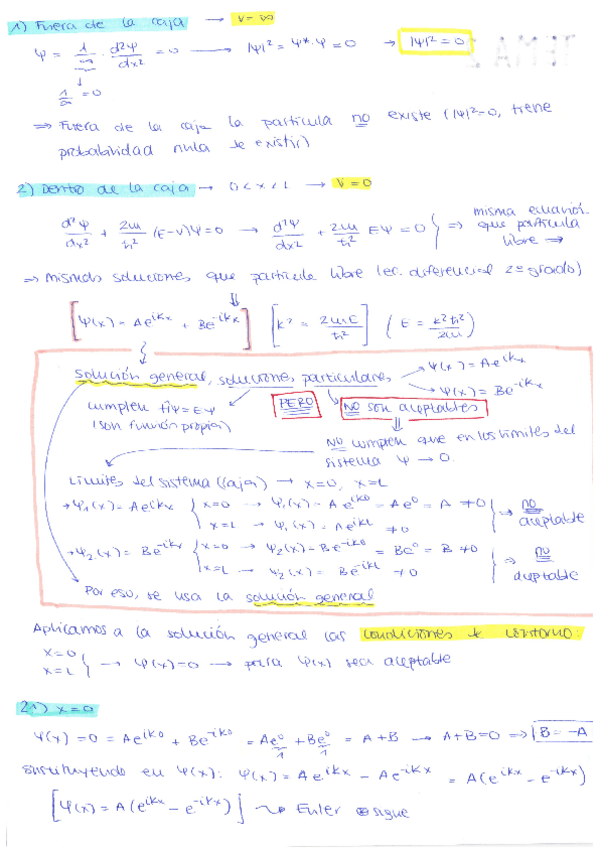 1) Fuera de la caja → V = ∞
Ψ = 1/∞ · d²Ψ/dx² = 0 → |Ψ|² = Ψ* · Ψ = 0 → |Ψ|² = 0
1/∞ = 0
⇒ Fuera de la caja la partícula no existe (|Ψ|²=0, tiene
probabilidad nula de existir)
2) Dentro de la caja → 0 < x < L → V = 0
d²Ψ/dx² + 2m/ħ² (E-V)Ψ = 0 → d²Ψ/dx² + 2m/ħ² EΨ = 0 } ⇒ misma ecuación que partícula libre ⇒
⇒ mismas soluciones que partícula libre (ec. diferencial 2º grado)
[Ψ(x) = Ae^{ikx} + Be^{-ikx}] [k² = 2mE/ħ²] (E = k²ħ²/2m)
solución general, soluciones particulares
Ψ(x) = Ae^{ikx}
Ψ(x) = Be^{-ikx}
cumplen ĤΨ = EΨ
(son función propia)
PERO NO son aceptables
NO cumplen que en los límites del
sistema Ψ → 0
Límites del sistema (caja) → x=0, x=L
→ Ψ₁(x) = Ae^{ikx} { x=0 → Ψ₁(x) = Ae^{ik0} = Ae⁰ = A ≠ 0
x=L → Ψ₁(x) = Ae^{ikL} ≠ 0 } ⇒ no aceptable
→ Ψ₂(x) = Be^{-ikx} { x=0 → Ψ₂(x) = Be^{-ik0} = Be⁰ = B ≠ 0
x=L → Ψ₂(x) = Be^{-ikL} ≠ 0 } ⇒ no aceptable
Por eso, se usa la solución general
Aplicamos a la solución general las condiciones de contorno:
x=0
x=L } → Ψ(x)=0 → para Ψ(x) sea aceptable
2.1) x=0
Ψ(x) = 0 = Ae^{ik0} + Be^{-ik0} = Ae⁰ + Be⁰ = A+B → A+B=0 ⇒ B = -A
1 1
sustituyendo en Ψ(x): Ψ(x) = Ae^{ikx} - Ae^{-ikx} = A(e^{ikx} - e^{-ikx})
[Ψ(x) = A(e^{ikx} - e^{-ikx})] → Euler sigue